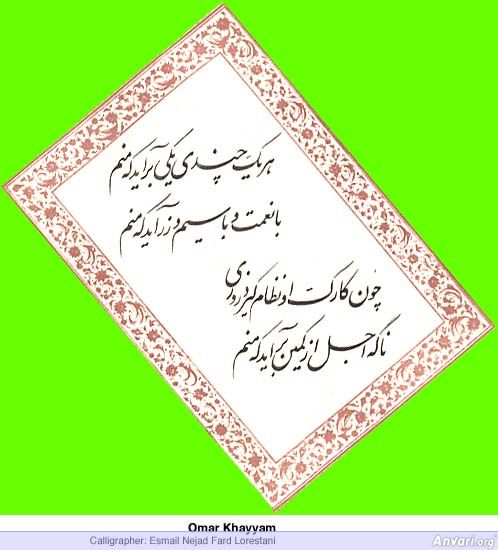 هر یک چندی یکی برآید که منم
با نعمت و با سیم و زر آید که منم
چون کارک او نظام گیرد روزی
ناگه اجل از کمین برآید که منم
Omar Khayyam
Calligrapher: Esmail Nejad Fard Lorestani
Anvari.org